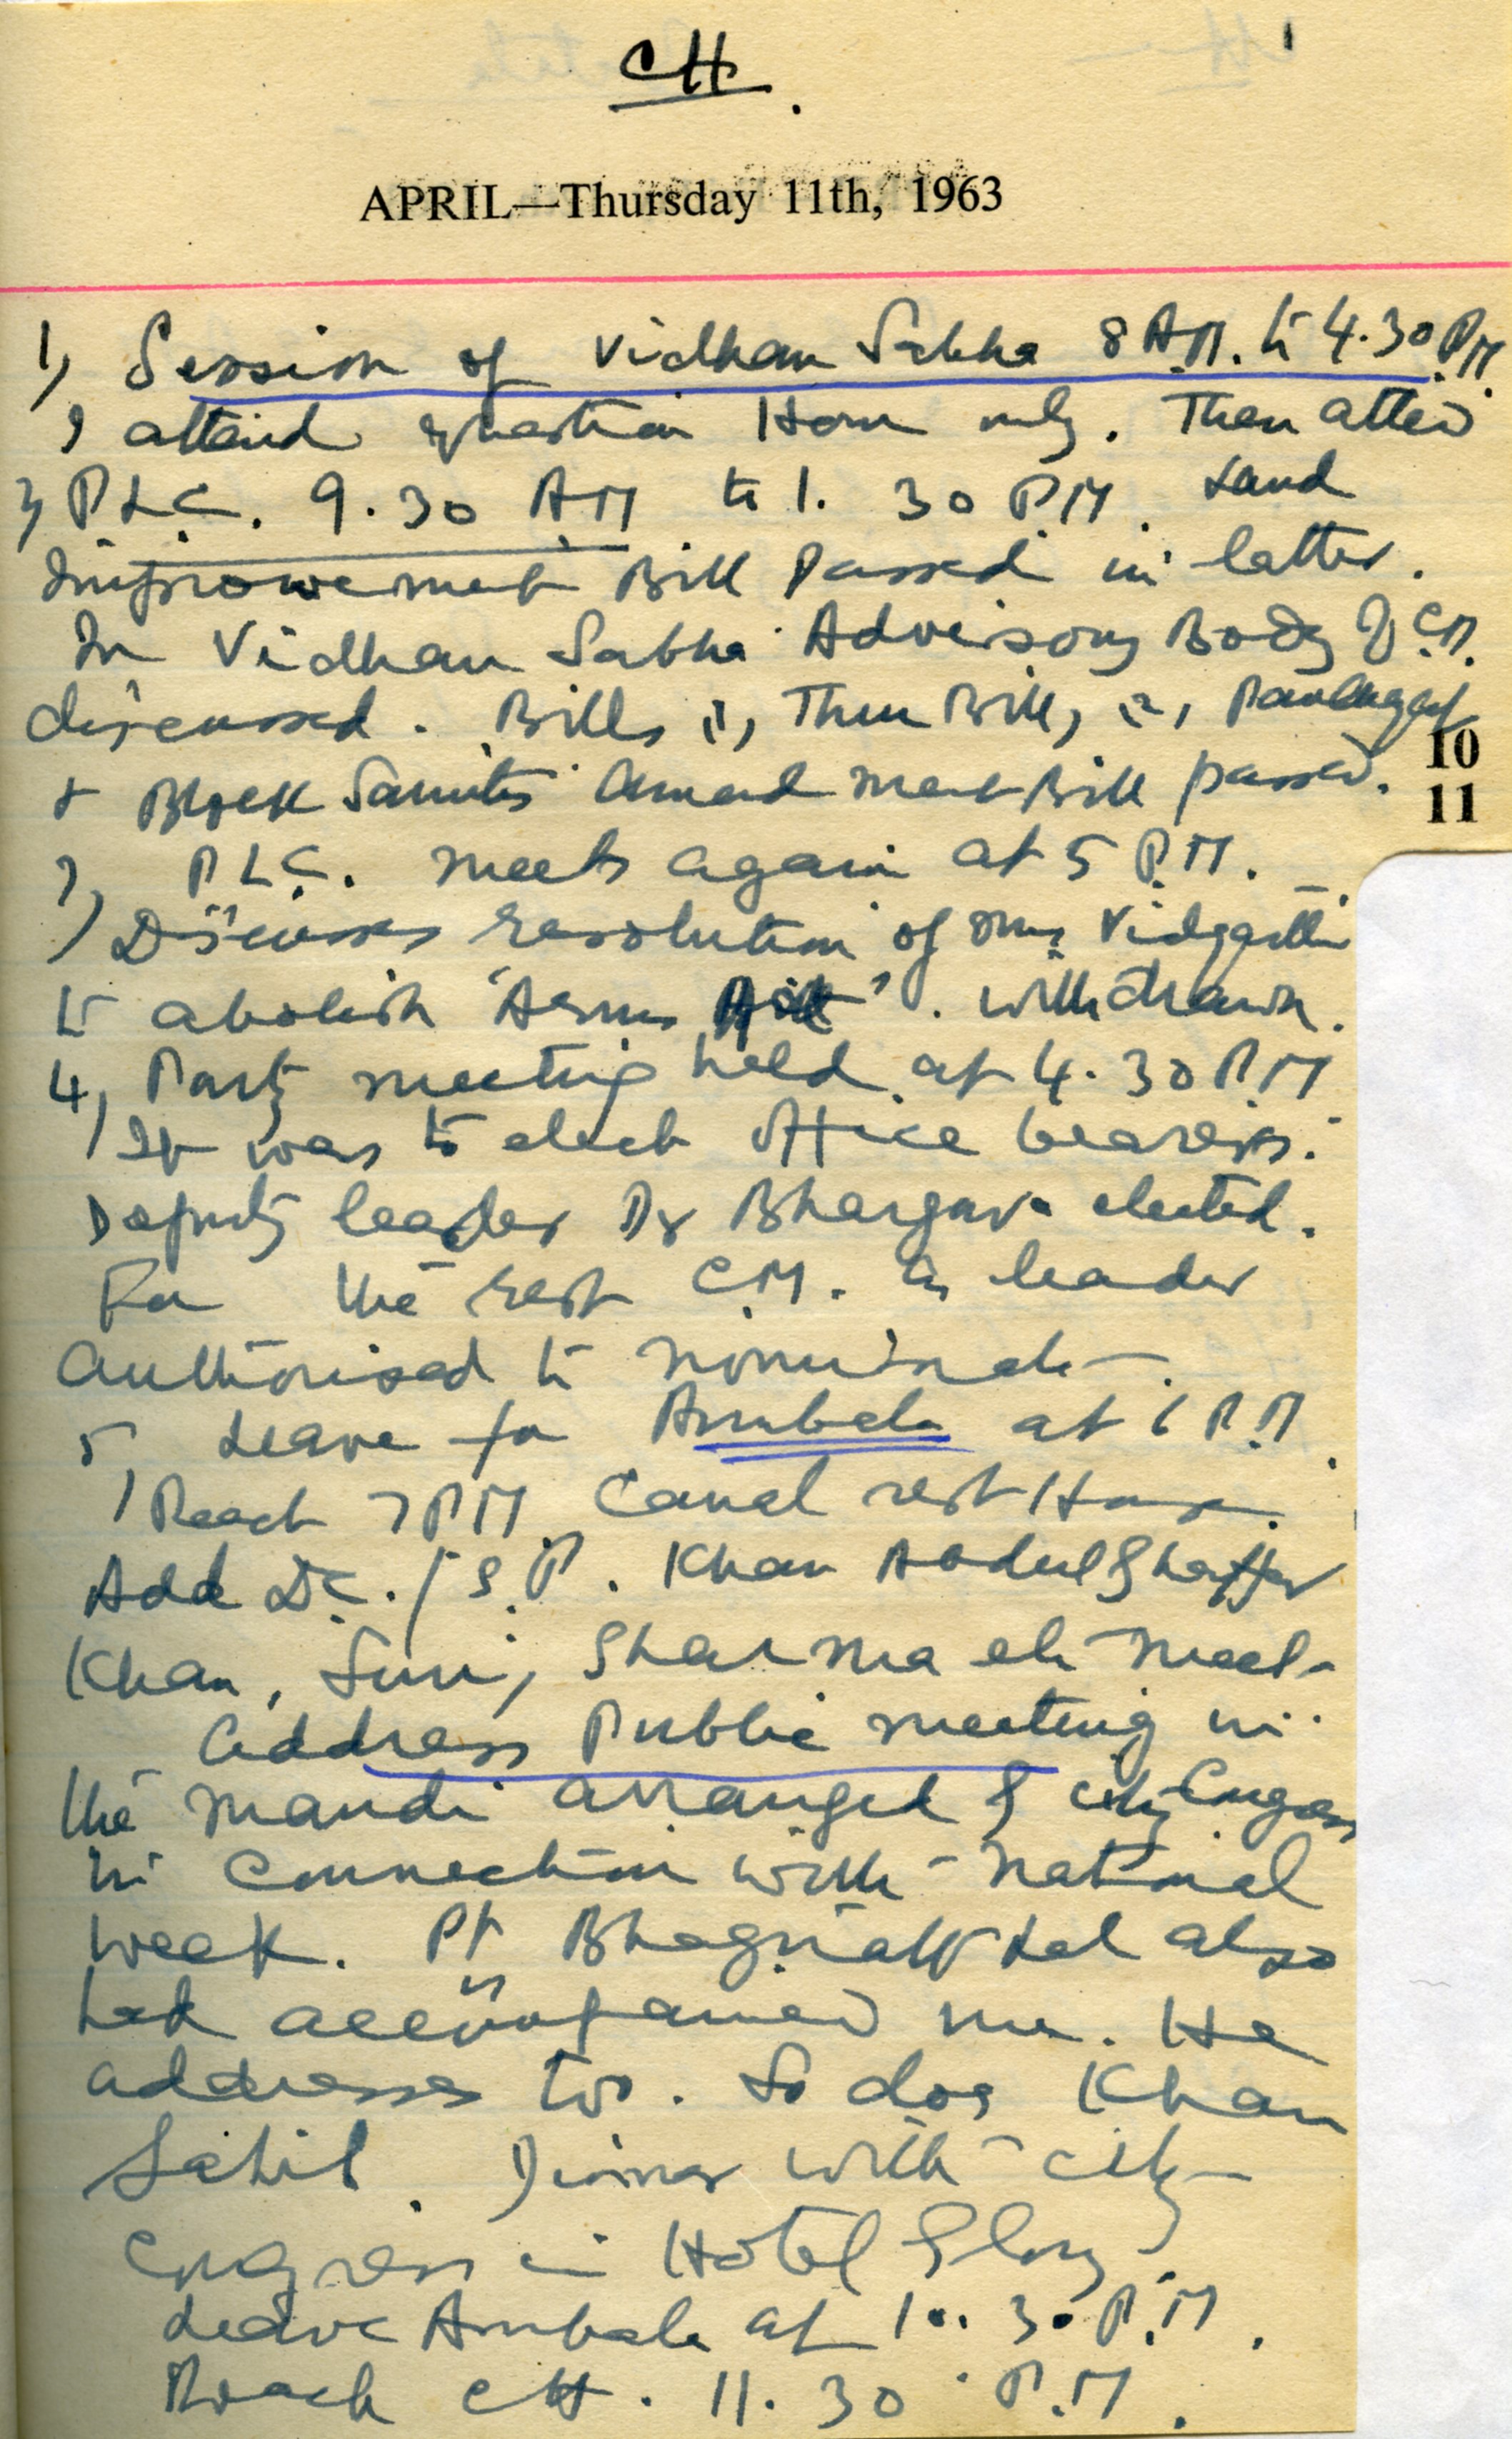 CH.
APRIL—Thursday 11th, 1963
1) Session of Vidhan Sabha 8 A.M. to 4.30 P.M.
I attend question Hour only. Then attend
2) P.L.C. 9.30 AM to 1.30 P.M. Land
Improvement Bill Passed in latter.
In Vidhan Sabha Advisory Body of C.M.
discussed. Bills (1), Three Bill, (2), Panchayat
10
+ Block Samitis Amendment Bill passed.
11
3) P.L.C. meets again at 5 P.M.
Discusses resolution of Mr. Vidyarthi
to abolish 'Arms Act'. withdrawn.
4) Party meeting held at 4.30 P.M
It was to elect office bearers.
Deputy leader Dr Bhargava elected.
For the rest C.M. as leader
authorised to nominate.
5) Leave for Ambala at 6 P.M.
Reach 7 PM Canal rest House.
Add D.C./S.P. Khan Abdul Ghaffar
Khan, Suri, Sharma etc meet.
Address Public meeting in
the mandi arranged by city Congress
in connection with National
week. Pt Bhagirath Lal also
had accompanied me. He
addresses too. So does Khan
Sahib. Dinner with city
Congress in Hotel Glory.
Leave Ambala at 10.30 P.M.
Reach CH. 11.30 P.M.